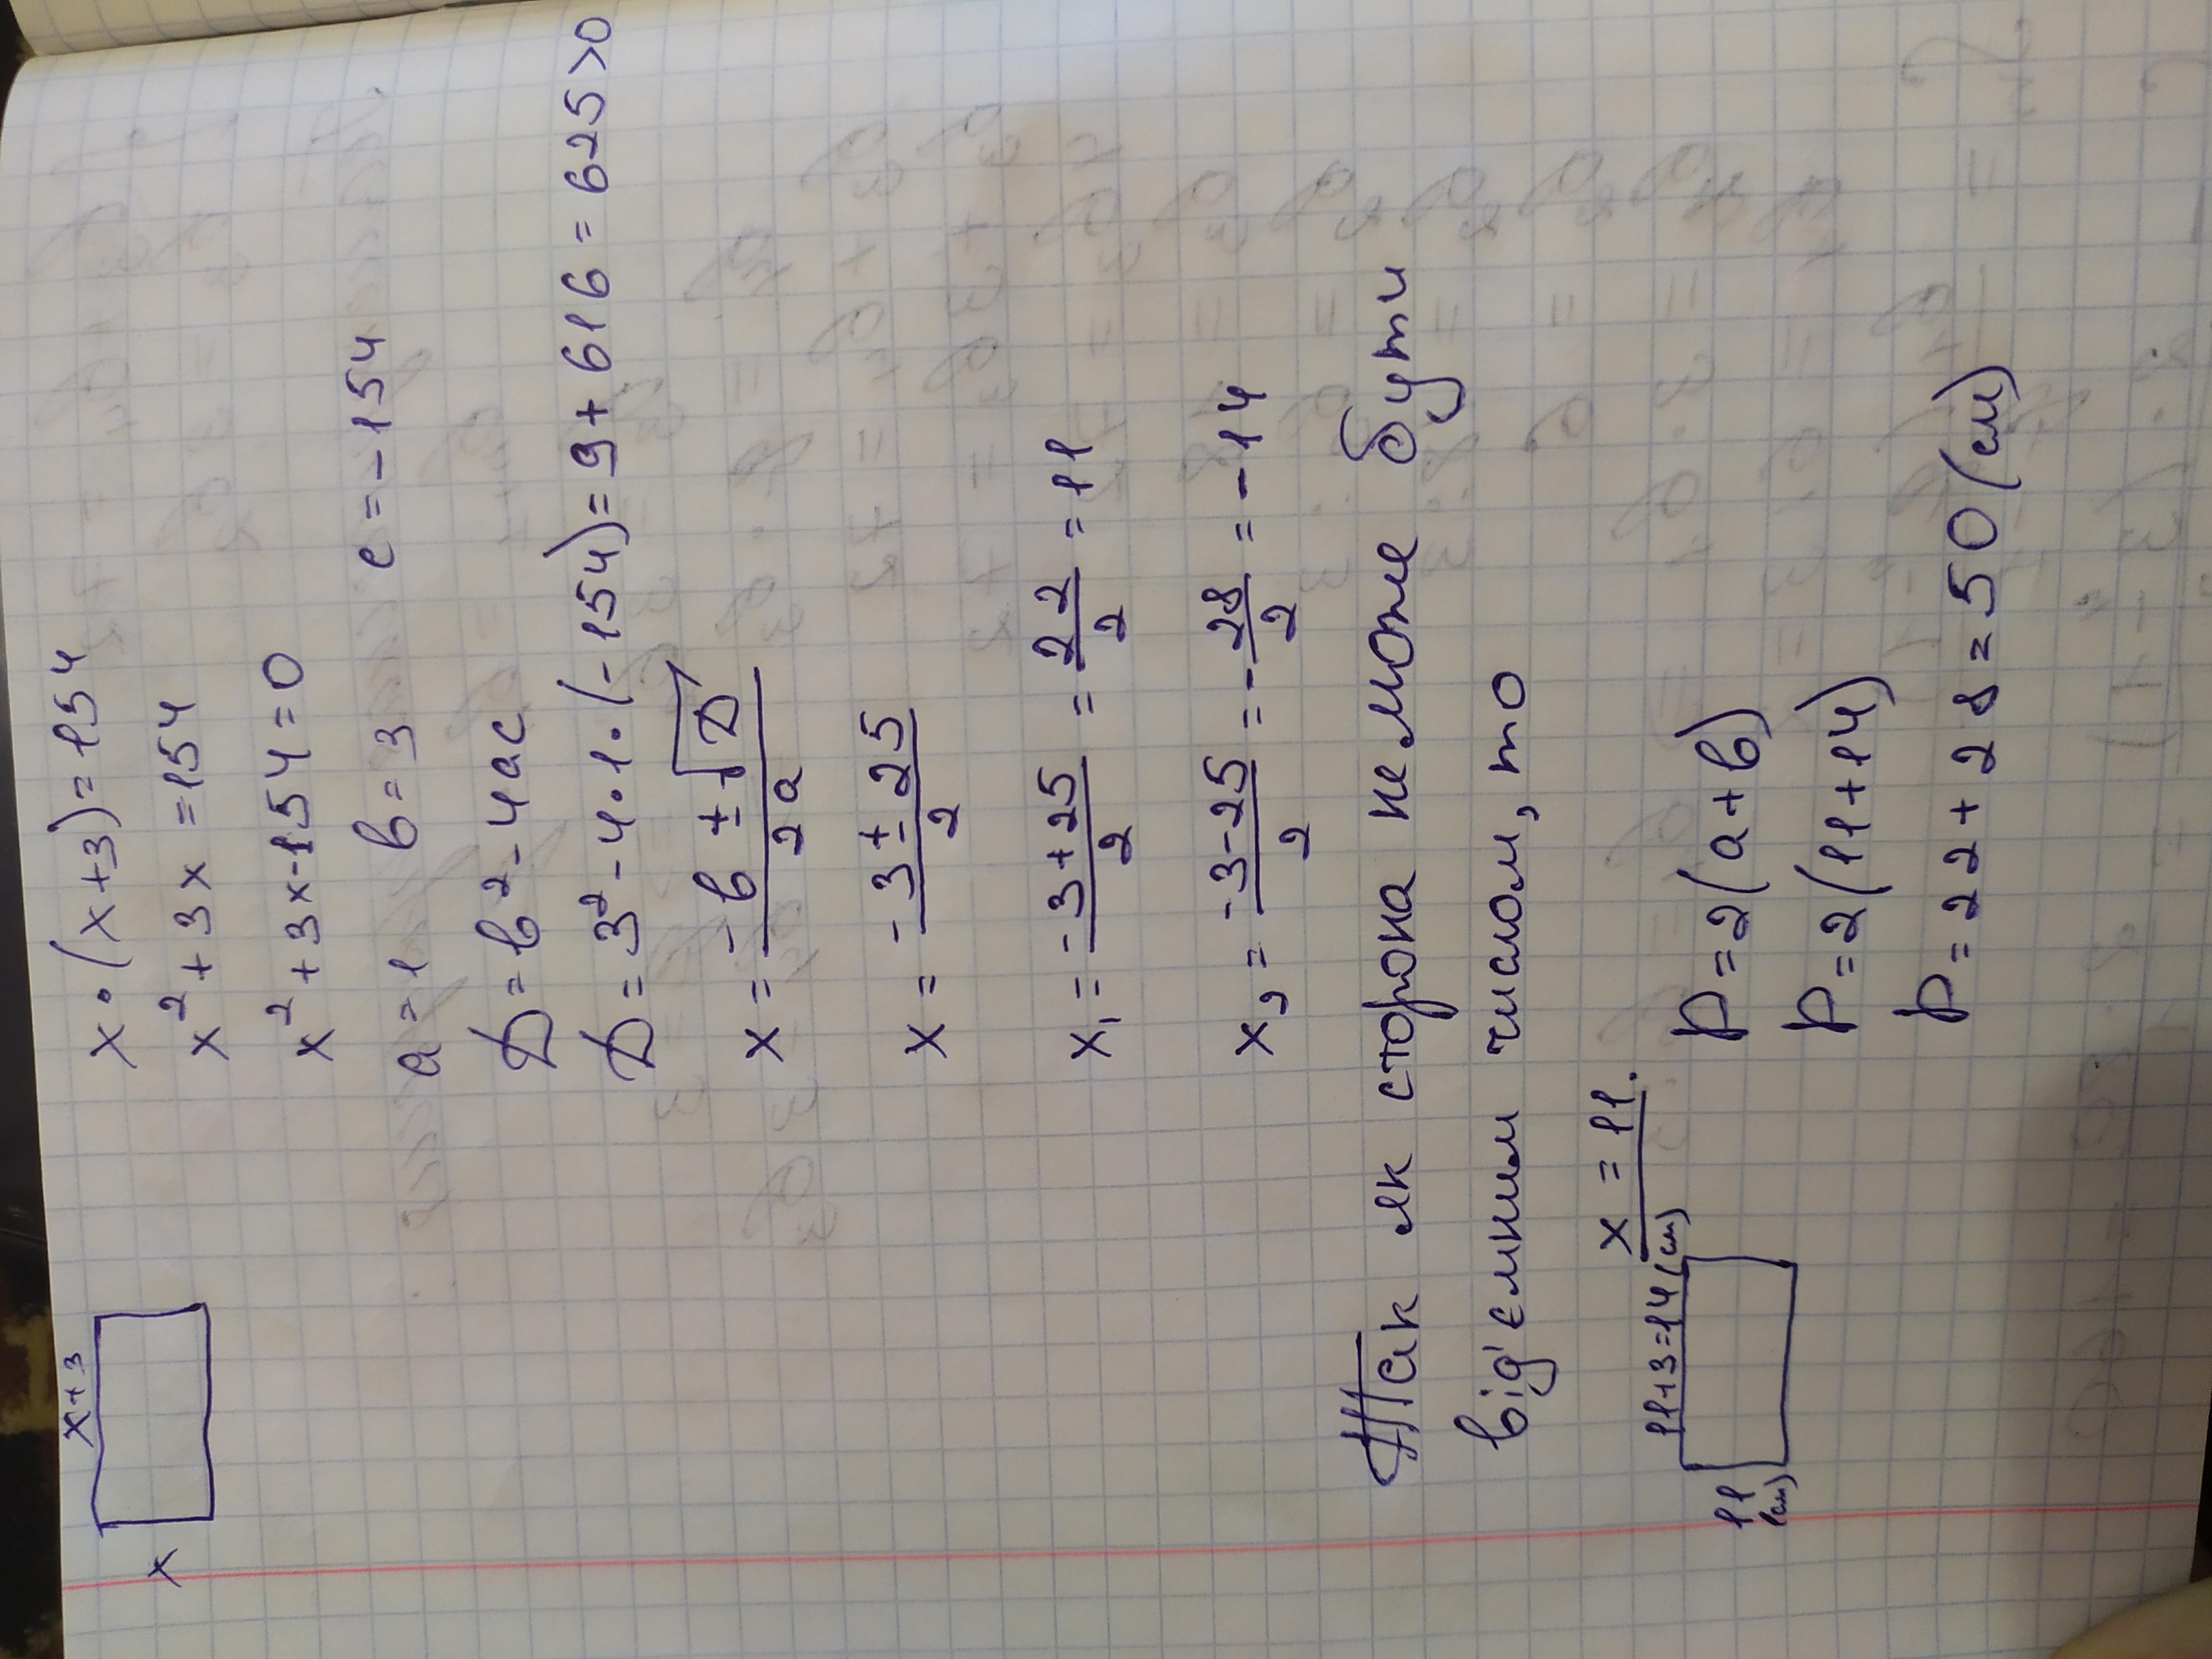 x+3
x
x · (x+3)=154
x²+3x=154
x²+3x-154=0
a=1 b=3 c=-154
D=b²-4ac
D=3²-4·1·(-154)=9+616=625>0
x = (-b ± √D)/2a
x = (-3 ± 25)/2
x₁ = (-3+25)/2 = 22/2 = 11
x₂ = (-3-25)/2 = -28/2 = -14
Так як сторона не може бути
від'ємним числом, то
x = 11.
11+3=14(см)
11 (см)
P=2(a+b)
P=2(11+14)
P=22+28=50(см)